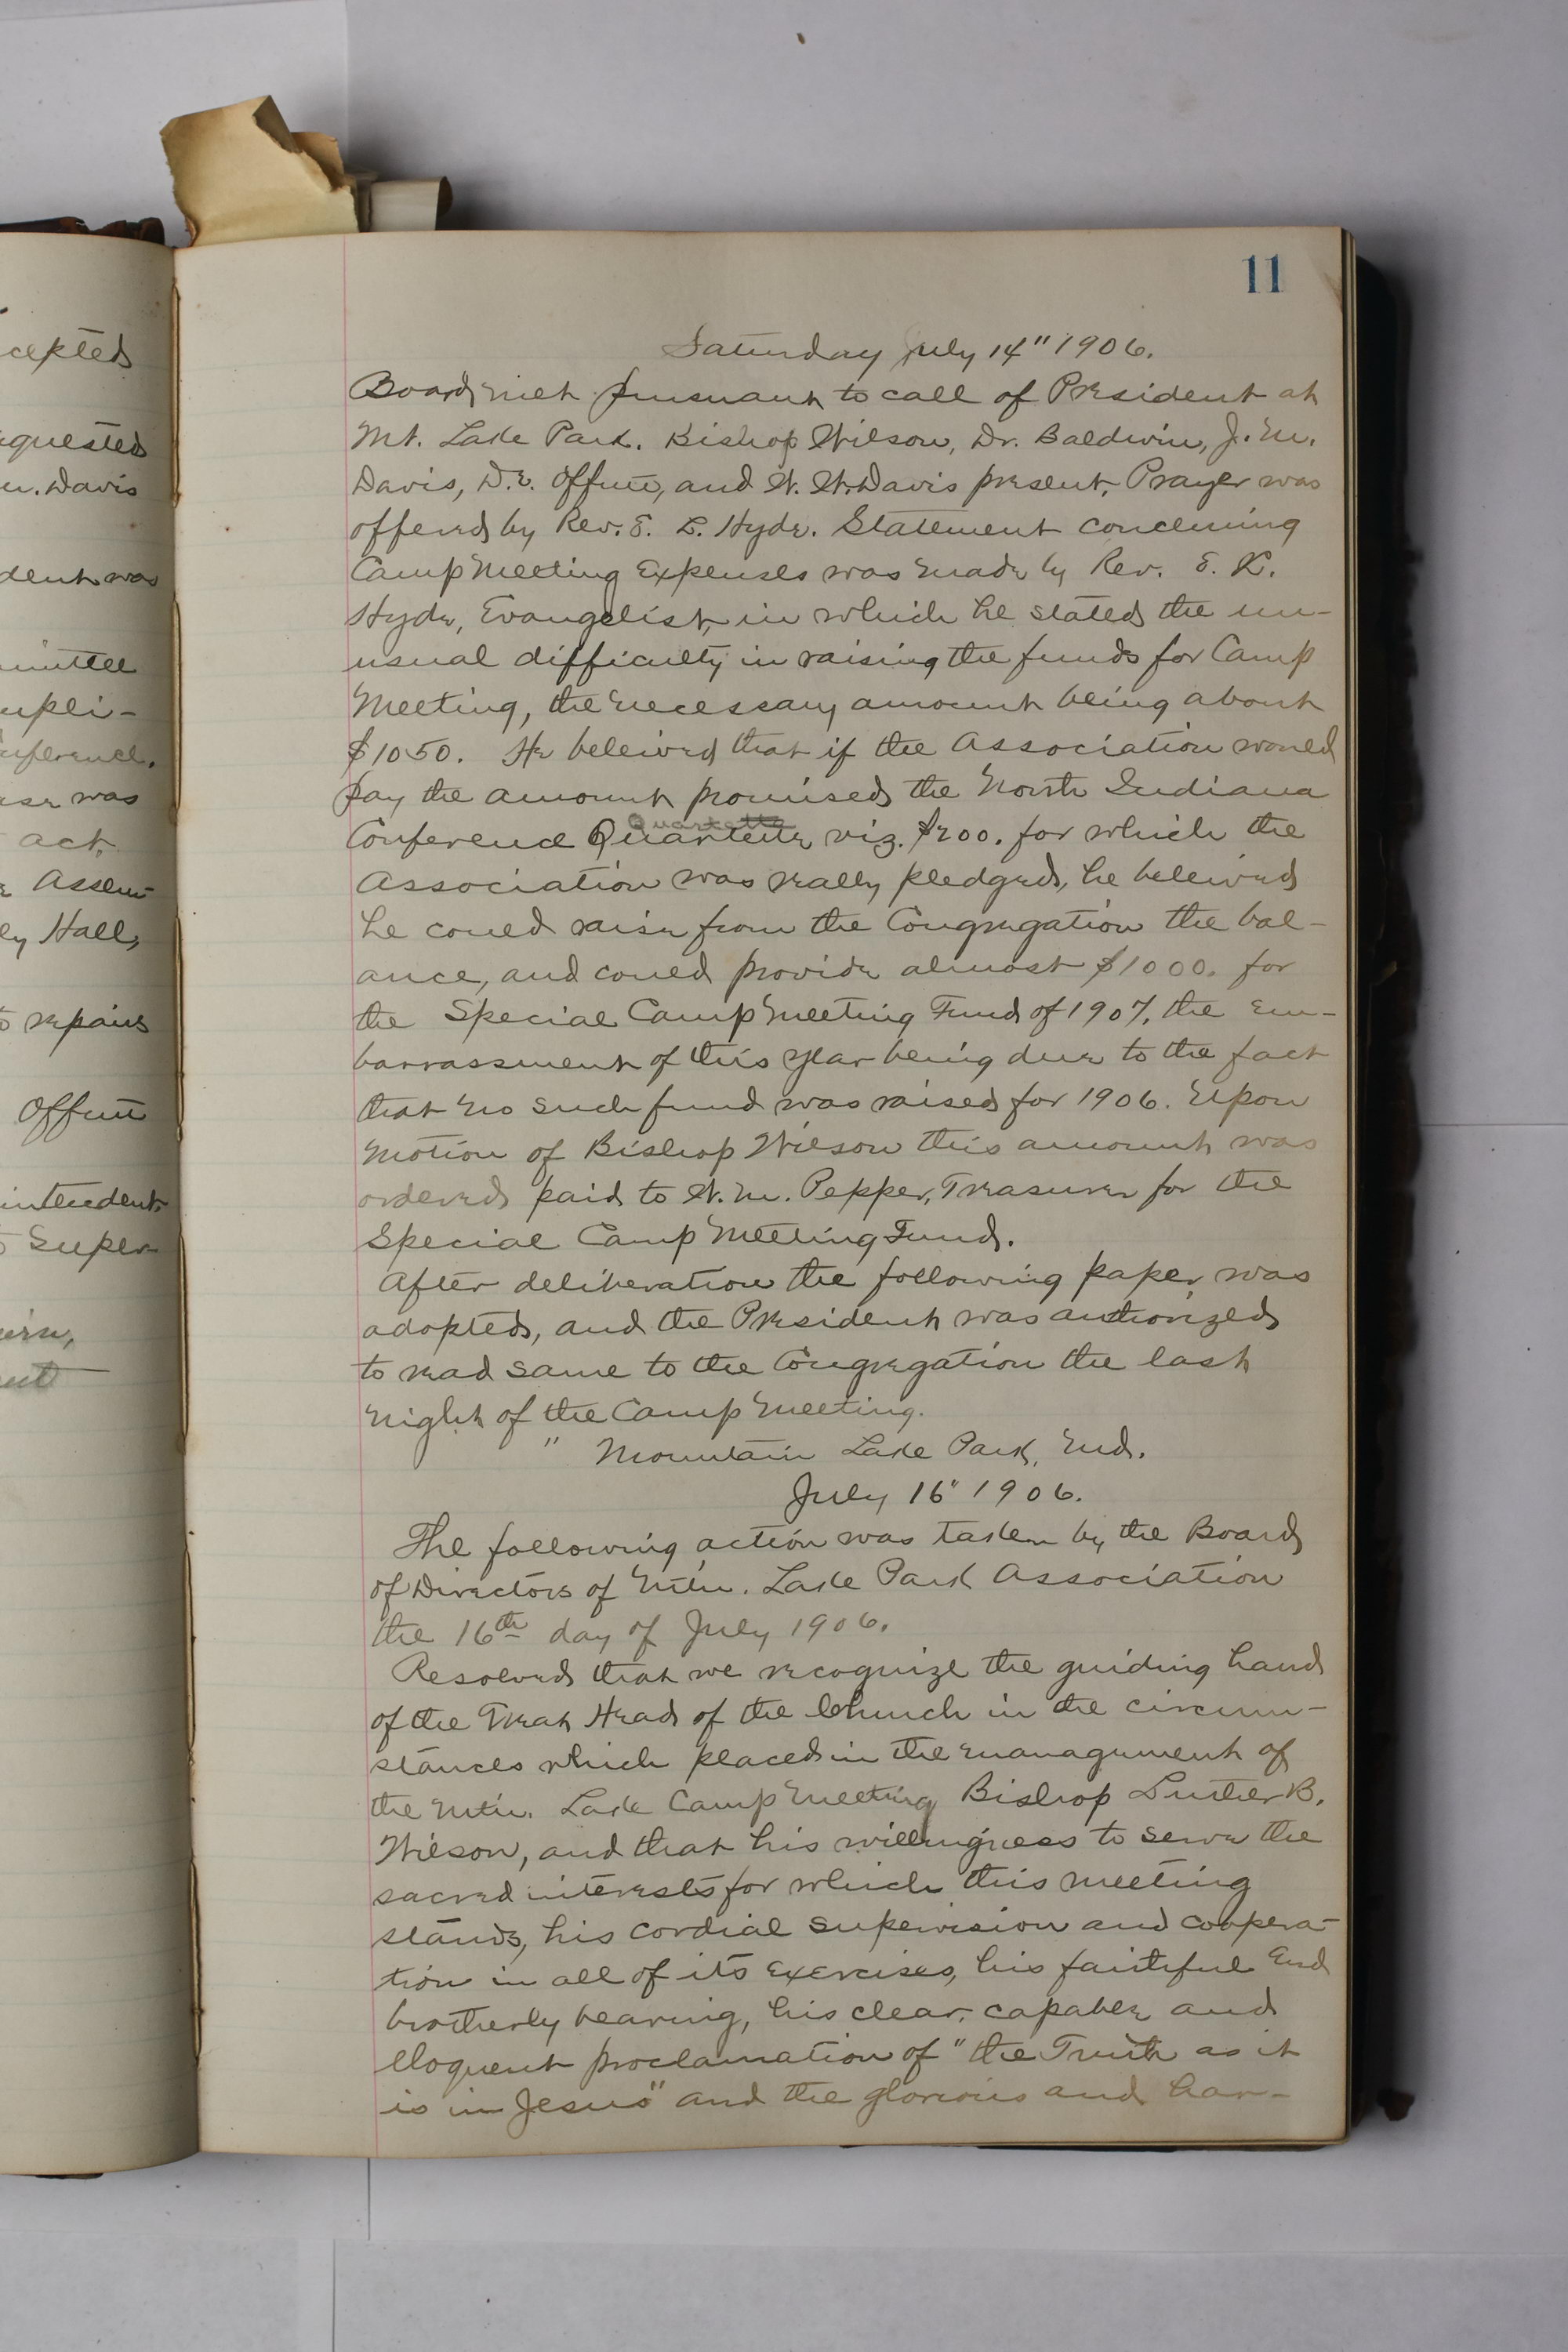 cepted
quested
m. Davis
dent was
mittee
upli-
nference.
ase was
act.
Assem-
ly Hall,
repairs
Offutt
intendent
Super-
11
Saturday July 14" 1906.
Board met pursuant to call of President at
Mt. Lake Park. Bishop Wilson, Dr. Baldwin, J. M.
Davis, D.E. Offutt, and W. W. Davis present. Prayer was
offered by Rev. E. L. Hyde. Statement concerning
Camp Meeting Expenses was made by Rev. E. K.
Hyde, Evangelist, in which he stated the un-
usual difficulty in raising the funds for Camp
Meeting, the necessary amount being about
$1050. He beleived that if the Association would
pay the amount promised the North Indiana
Quartette
Conference Quartette viz. $200. for which the
Association was really pledged, he beleived
he could raise from the Congregation the bal-
ance, and could provide almost $1000. for
the Special Camp Meeting Fund of 1907, the em-
barrassment of this year being due to the fact
that no such fund was raised for 1906. Upon
motion of Bishop Wilson this amount was
ordered paid to W. M. Pepper, Treasurer for the
Special Camp Meeting Fund.
After deliberation the following paper was
adopted, and the President was authorized
to read same to the Congregation the last
night of the Camp Meeting.
" Mountain Lake Park, Md.
July 16" 1906.
The following action was taken by the Board
of Directors of Mtn. Lake Park Association
the 16th day of July 1906.
Resolved that we recognize the guiding hand
of the Great Head of the Church in the circum-
stances which placed in the management of
the Mtn. Lake Camp Meeting Bishop Luther B.
Wilson, and that his willingness to serve the
sacred interests for which this meeting
stands, his cordial supervision and coopera-
tion in all of its exercises, his faithful and
brotherly bearing, his clear, capable and
eloquent proclamation of "the Truth as it
is in Jesus" and the glorious and har-